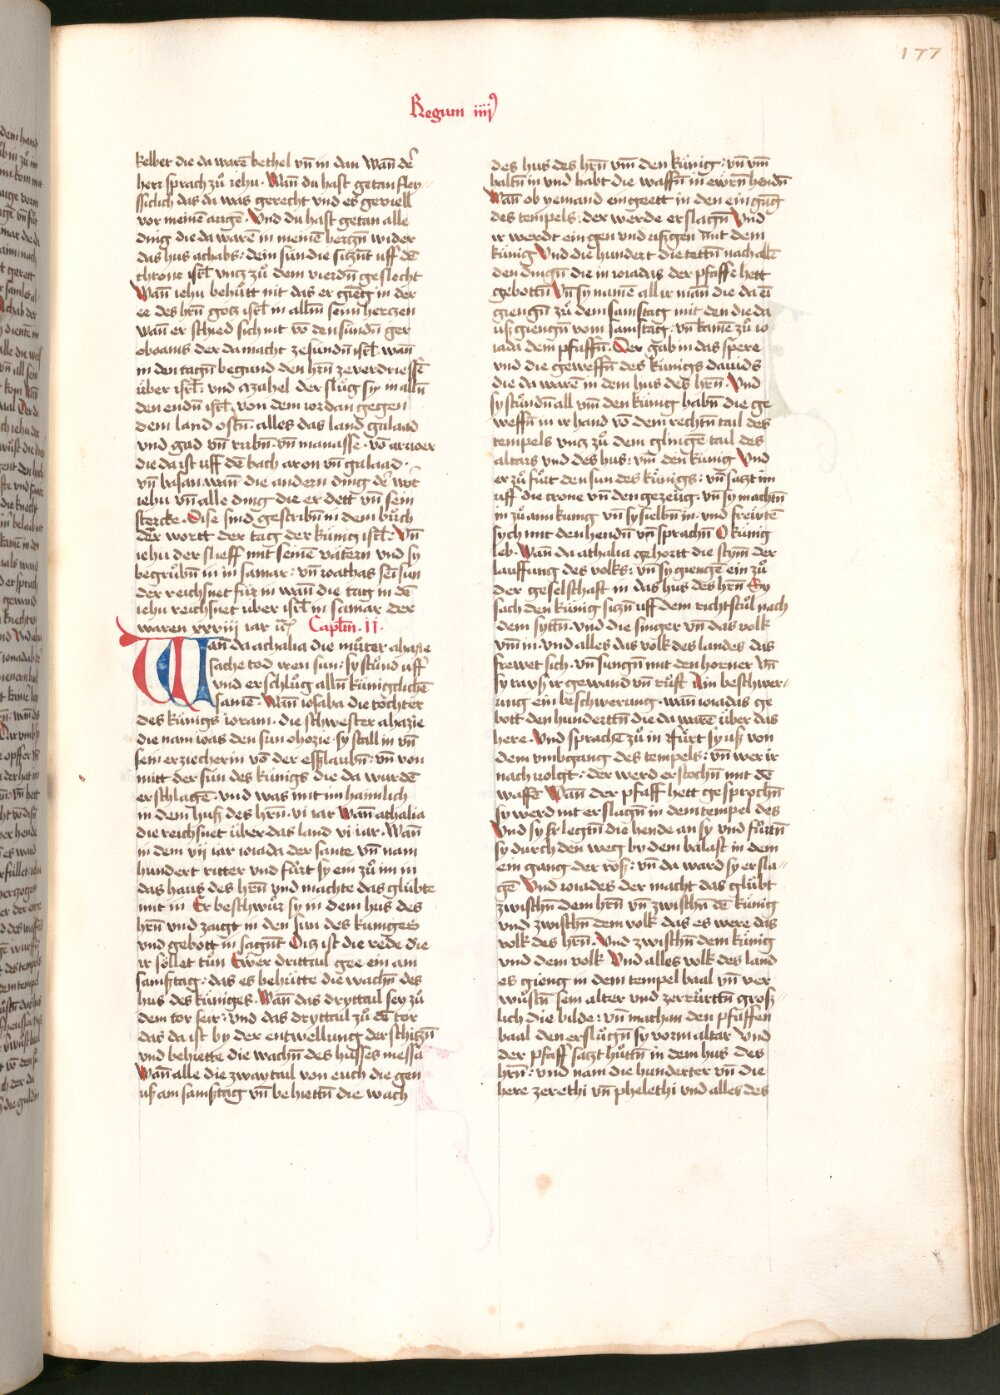 177
Regum iiij
kelber die da warē bethel vn̄ in dan Wan̄ dˢ
herr sprach zů iehu · Wan̄ du hast getan fley-
ssiclich das da was gerecht und es geviell
vor meinē augē · Vnd du hast getan alle
ding die da warē in meinē herczn̄ wider
das hus achabs : dein sün die siczn̄t uff dē
throne isrl̄ vncz zů dem vierdn̄ geslecht
Wan̄ iehu behütt nit das er gieng in der
ee des hrn̄ gotz isrl̄ in alln̄ seim herczen
wan̄ er schied sich nit vō den sündn̄ ger
oboams der da macht ze sündn̄ isrl̄ · wan̄
in den tagn̄ begund den hrn̄ ze verdriessē
über isrl̄ : vnd azahel der slůg sy in alln̄
den endn̄ isrl̄ von dem iordan gegen
dem land ostn̄ : alles das land galaad
vnd gad vn̄ rubn̄ · vn̄ manasse · vō aroer
die da ist uff dē bach arnon vn̄ galaad ·
vn̄ basan wan̄ die andern ding dˢ wort
iehu vn̄ alle ding die er dett vn̄ sein
stercke · Dise sind gescribn̄ in dem bůch
der wortt der tag der künig isrl̄ : Vn̄
iehu der slieff mit seinē vätern vnd sy
begrůbn̄ in in samar : vn̄ ioathas sein sun
der reichsnet für in wan̄ die tag in dē
iehu reichsnet über isrl̄ in samar der
waren xxviij iar Caplm̄ · 11 ·
Wan̄ da athalia die můter ahazie
sache tod iren sun : sy stůnd uff
vnd erschlůg alln̄ künigclichē
samē · Wan̄ iosaba die tochter
des künigs ioram · die schwester ahazie
die nam ioas den sun ohozie · sy stall in vn̄
sein erziecherin vō der esslaubn̄ : vn̄ von
mitt der sün des künigs die da wurdē
erschlagē · vnd was mit im haimlich
in dem huss des hrn̄ · vi iar Wan̄ athalia
die reichsnet über das land vi iar · Wan̄
in dem vij iar ioiada der sante vn̄ nam
hundert ritter vnd fůrt sy ein zů im in
das haus des hrn̄ vnd machte das glübte
mit in Er beschwůr sy in dem hus des
hrn̄ vnd zaigt in den sun des kuniges
vnd gebott in sagn̄t Ditz ist die rede die
ir söllet tün Ewer drittail gee ein am
samsztag : das es behütte die wachn̄ des
hus des küniges · Wan̄ das dryttail sey zů
dem tor seir : vnd das dryttail zů dē tor
das da ist by der entwellung der schiczn̄
vnd behütte die wachn̄ des husses messa
Wan̄ alle die zway tail von euch die gen
us am samsztag vn̄ behüettn̄ die wach
des hus des hrn̄ vm̄ den künig : vn̄ vm̄
haltn̄ in vnd habt die waffn̄ in ewrn̄ hendn̄
Wan̄ ob yemand eingeett in den eingang
des tempels : der werde erslagn̄ Vnd
ir werdt ein gen vnd usz gen mit dem
künig Vnd die hundert die tettn̄ nach allē
den dingn̄ die in ioiadas der pfaffe hett
gebottn̄ Vn̄ sy namē all ir man̄ die da ei
giengn̄ zů dem samstag mit den die da
usz giengn̄ vom samstag · vn̄ kamē zů io
iada dem pfaffn̄ · Der gab in das spere
vnd die geweffn̄ des künigs dauids
die da warē in dem hus des hrn̄ · Vnd
sy stůndn̄ all vm̄ den künig habn̄ die ge
weffn̄ in ir hand vō dem rechtn̄ tail des
tempels vncz zů dem glinggē tail des
altars vnd des hus : vm̄ den künig Vnd
er zů fůrt den sun des künigs : vn̄ saczt im
uff die crone vn̄ den gezeüg · vn̄ sy machtn̄
in zů aim kunig vn̄ sy salbn̄ in · vnd frewtē
sych mit den hendn̄ vn̄ sprachn̄ O künig
leb · Wan̄ da athalia gehortt die stym̄ der
lauffung des volks : vn̄ sy giengē ein zů
der geselschaft in das hus des hrn̄ Sy
sach den künig siczn̄ uff dem richtstůl nach
dem syttn̄ · vnd die singer vn̄ das volk
vm̄ in · vnd alles das volk des landes das
frewet sich · vn̄ sungn̄ mit den horner Vn̄
sy rayss ir gewand vn̄ růft Ain beschwer-
ung ein beschwerung · wan̄ ioiadas ge
bott den hundertn̄ die da warē über das
here · Vnd sprachē zů in Fürt sy usz von
dem vmbgang des tempels : vn̄ wer ir
nach volgt : der werd erstochn̄ mit dē
waffē Wan̄ der pfaff hett gesprochn̄
sy werd nit erslagn̄ in dem tempel des
Vnd sy legtn̄ die hende an sy vnd fůrtn̄
sy durch den weg by dem balast in dem
ein gang der ross : vn̄ da ward sy ersla-
gē Vnd ioiades der macht das glübt
zwischn̄ dem hrn̄ vn̄ zwischn̄ dē künig
vnd zwischn̄ dem volk das es were das
volk des hrn̄ · Vnd zwischn̄ dem künig
vnd dem volk Vnd alles volk des land
es gieng in dem tempel baal vn̄ ver
wůstn̄ sein alter vnd zerrürttn̄ gross
lich die bilde : vn̄ mathan den pfaffen
baal den erslůgn̄ sy vor im altar Vnd
der pfaff saczt hůttn̄ in dem hus des
hrn̄ : vnd nam die hunderter vn̄ die
here zerethi vn̄ phelethi vnd alles des